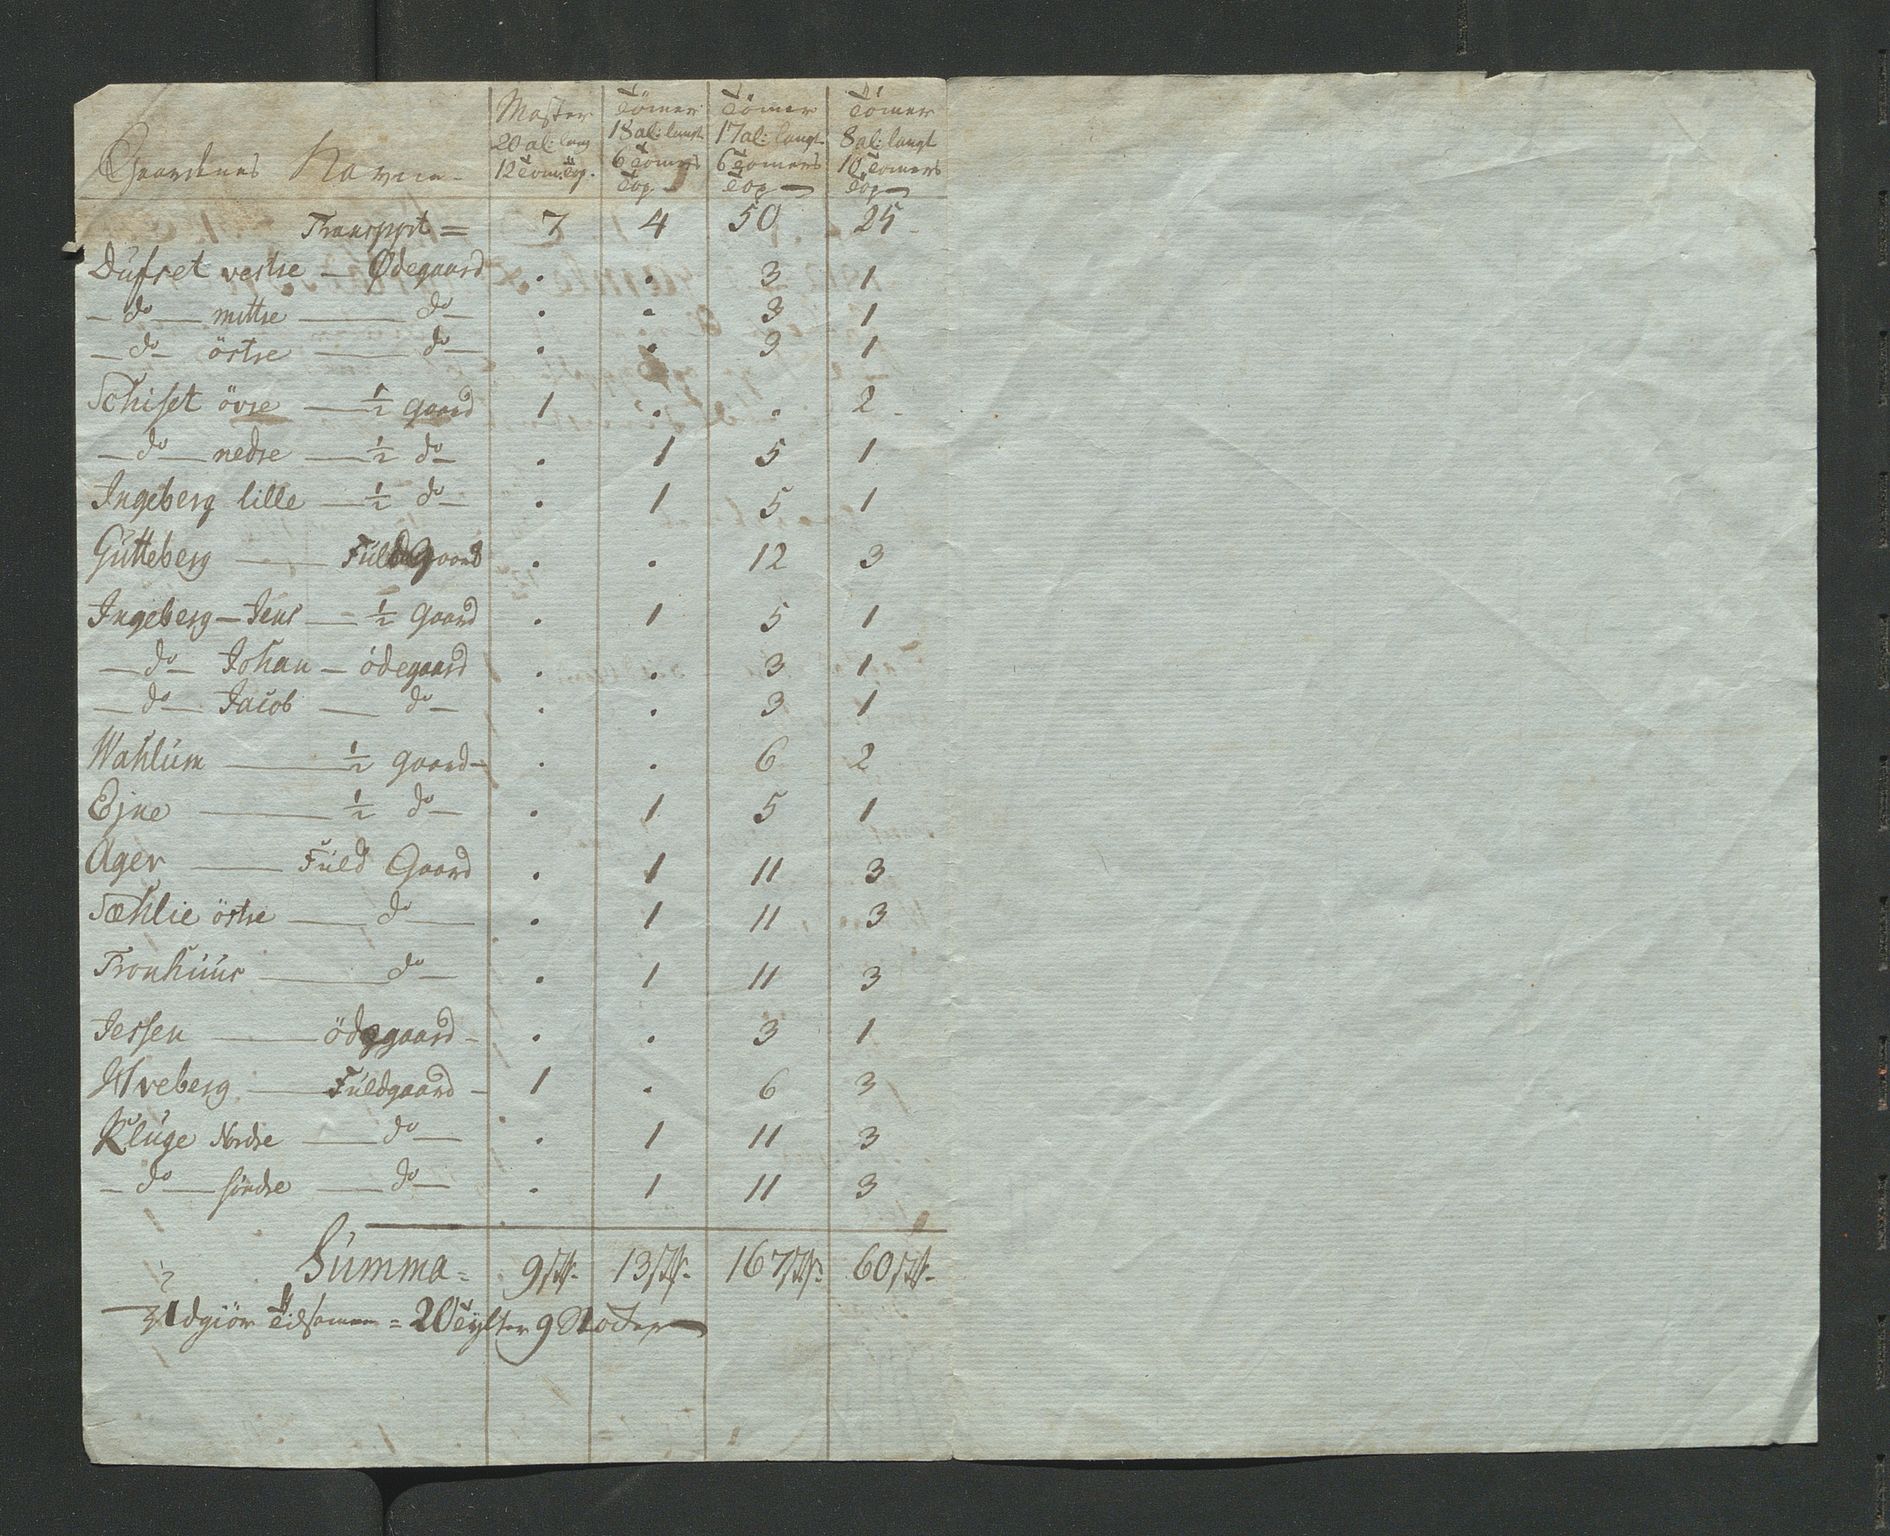 Gaardenes Navne - | Master 20 al: lang 12 Tom: Top. | Tömer 18 al: langt 6 Tomers Top | Tömer 17 al: langt 6 Tomers Top | Tömer 8 al: langt 10 Tomers Top
Transport = 7 4 50 25
Dufset vestre — Ødegaard . . 3 1
— do — mittre — do — . . 3 1
— do — östre — do — . . 3 1
Schiset övre — 1/2 gaard 1 . . 2
— do — nedre — 1/2 do — . 1 5 1
Ingeberg lille — 1/2 do — . 1 5 1
Gutteberg — Fuld Gaard . . 12 3
Ingeberg — Jens — 1/2 Gaard . 1 5 1
— do — Johan — ödegaard . . 3 1
— do — Jacob — do — . . 3 1
Wahlum — 1/2 gaard — . . 6 2
Ejne — 1/2 do — . 1 5 1
Ager — Fuld Gaard . 1 11 3
Sæhlie östre — do — . 1 11 3
Tronhuus — do — . 1 11 3
Jessen — ödegaard — . . 3 1
Hveberg — Fuldgaard — 1 . 6 3
Kluge Nordre — do — . 1 11 3
— do — söndre — do — . 1 11 3
Summa = 9 13 167 60
Udgiör Tilsamen = 20 Tylter 9 Stokker